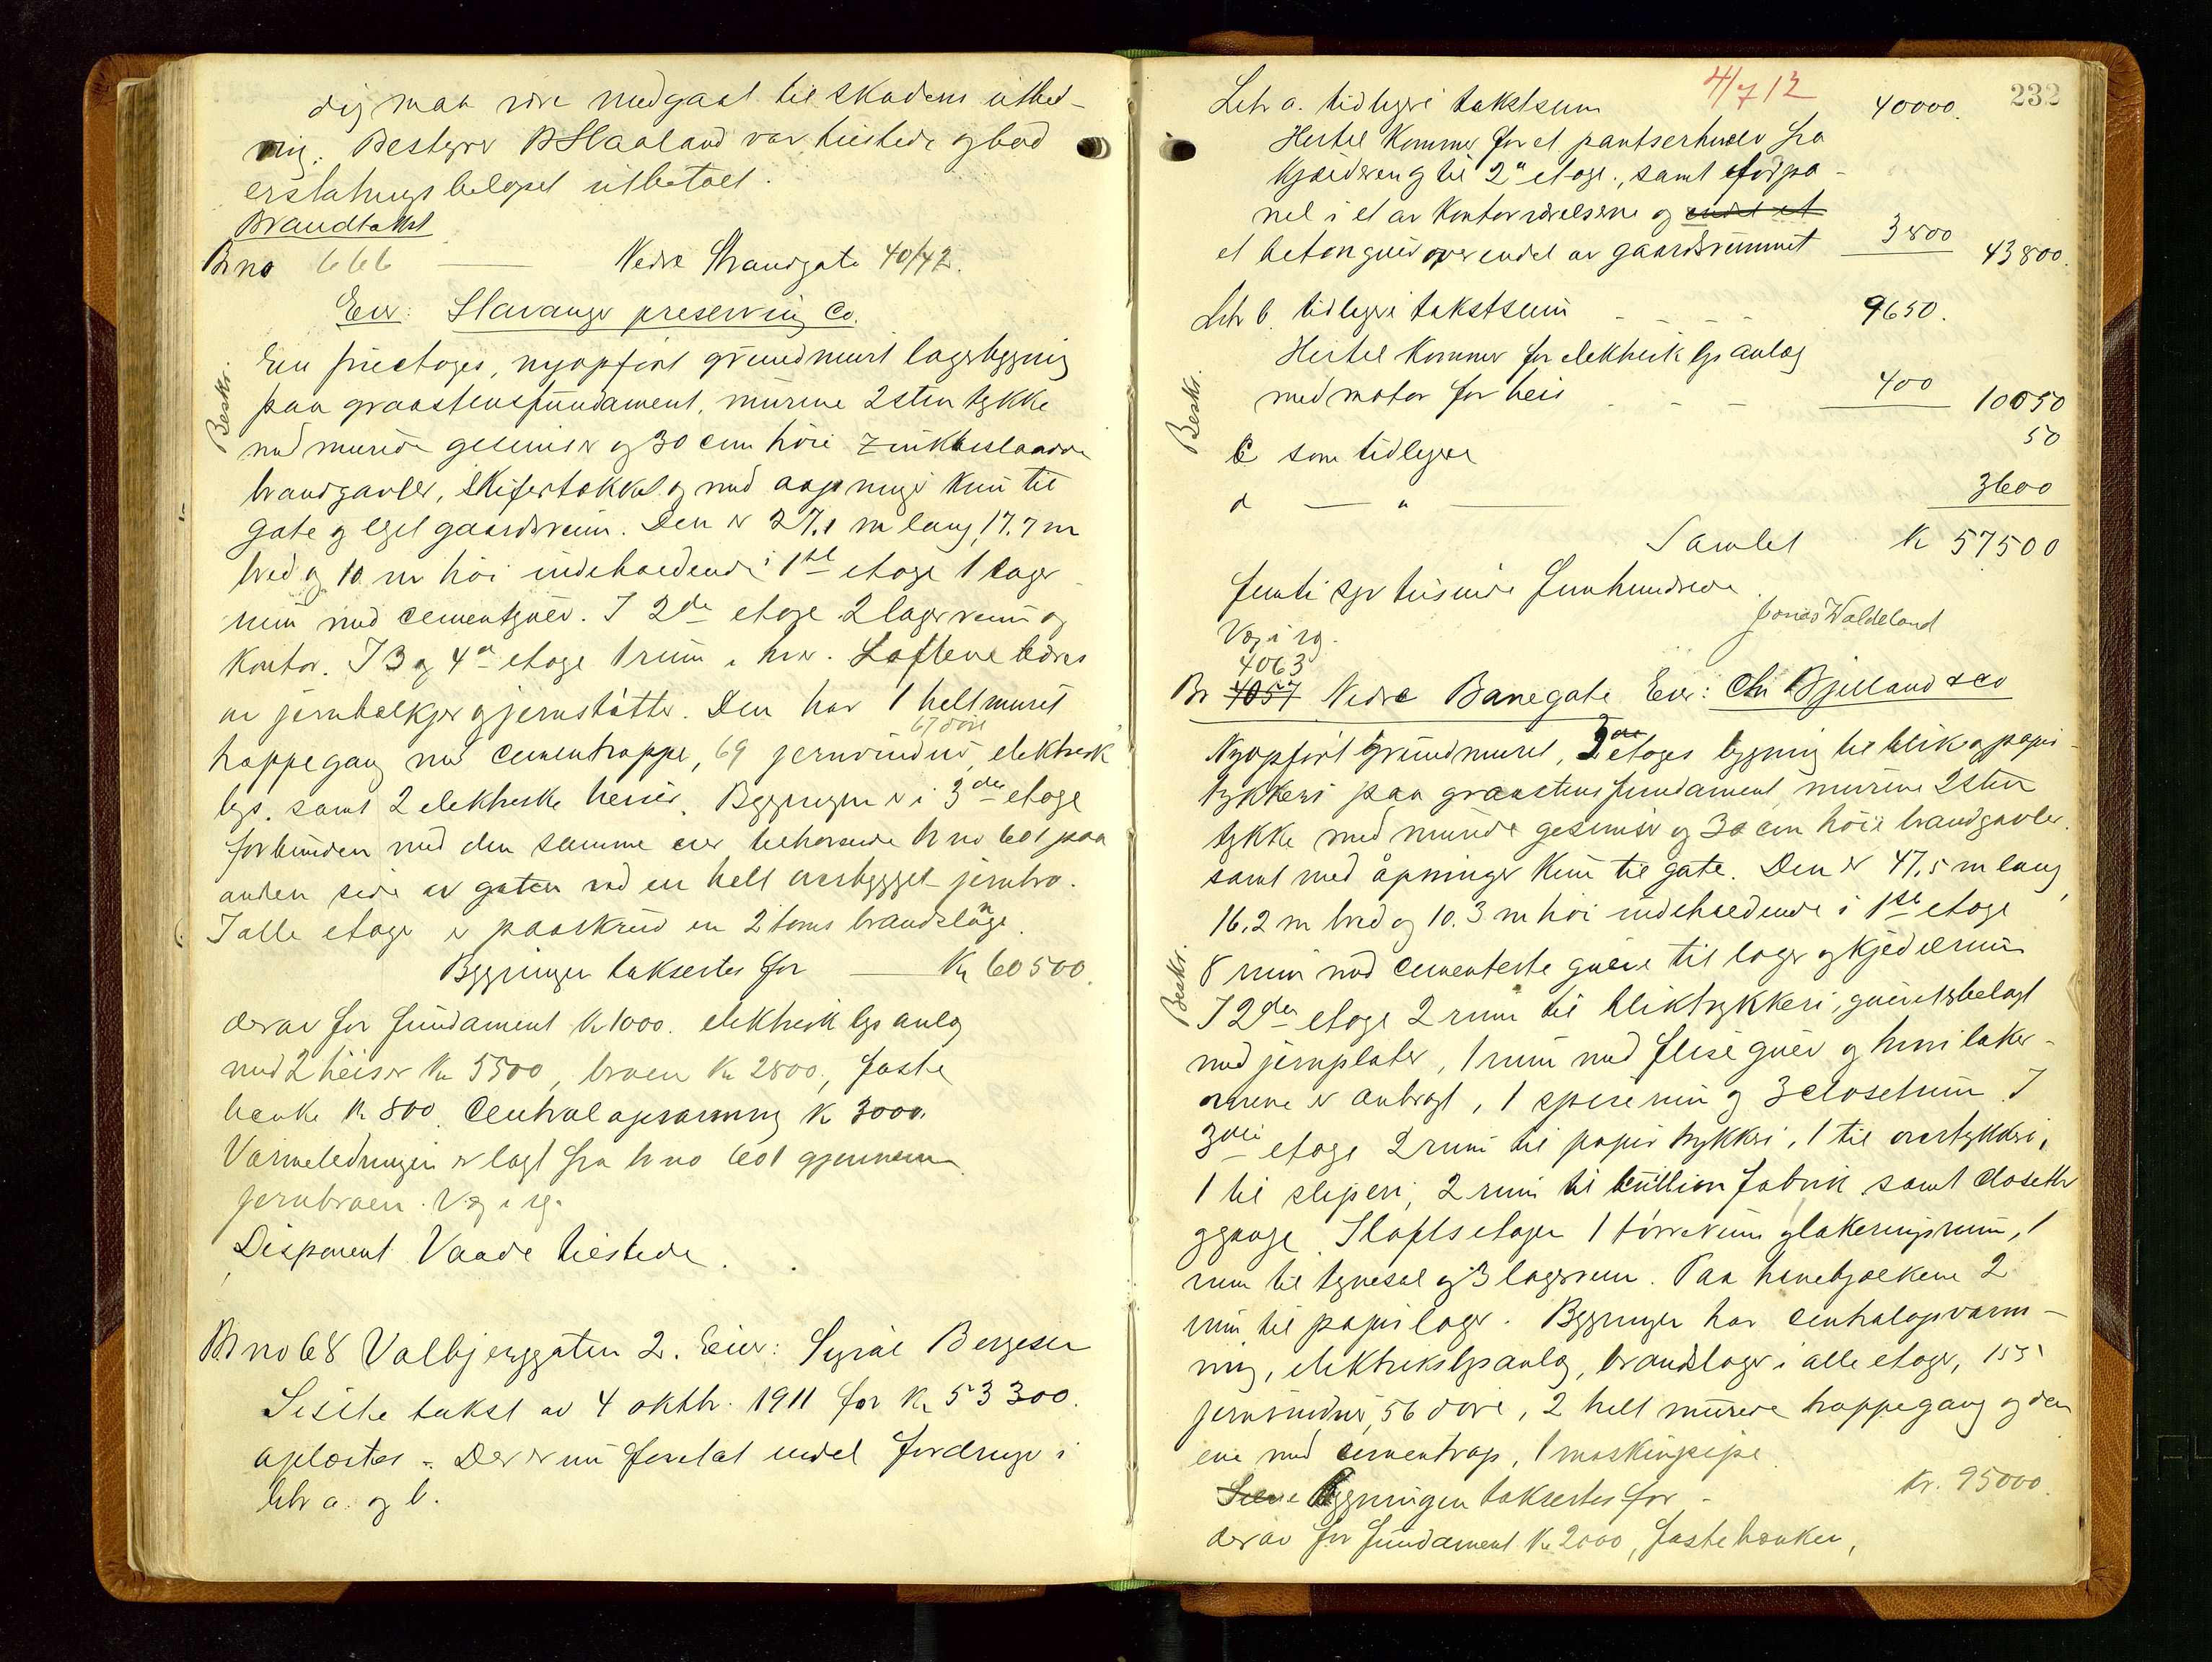 dej maa være medgaat til skadens utbed-
ring. Bestyrer B Haaland var tilstede og bad
erstatningsbeløpet utbetalt.
Brandtakst
Br no 666 — Nedre Strandgate 40/42.
Eier: Stavanger preserving Co.
Beskr.
En fireetages, nyopført grundmurt lagerbygning
paa graastensfundament, murene 2 sten tykke
med murede gesimser og 30 cm høie zinkbeslaadde
brandgavler, skifertækket og med aapninger kun til
gate og eget gaardsrum. Den er 27,1 m lang, 17.7 m
bred og 10 m høi indeholdende i 1ste etage 1 lager
rum med cementgulv. I 2de etage 2 lagerrum og
kontor. I 3 og 4de etage 1 rum i hver. Loftene bæres
av jernbjelker og jernstøtter. Den har 1 helt muret
trappegang med cementtrappe, 69 jernvinduer, 67 døre elektrisk
lys, samt 2 elektriske heiser. Bygningen er i 3die etage
forbunden med den samme eier tilhørende br no 601 paa
anden side av gaten ved en helt overbygget jernbro.
I alle etager er paaskrud en 2 toms brandslange.
Bygningen taksertes for — Kr 60500.
derav for fundament Kr 1000. elektrisk lys anlæg
med 2 heiser Kr 5500, broen Kr 2800, faste
bænke Kr 800. Centralopvarming Kr 3000.
Varmeledningen er lagt fra br no 601 gjennem
jernbroen. V. æ. i rg.
Disponent Vaade tilstede.
Br no 68 Valbjerggaten 2. Eier: Sigval Bergesen
Sisste takst av 4 oktbr. 1911 for Kr 53300.
oplæstes. Der er nu foretat endel fordringer i
litr a. og b.
232
4/7 12
Litr a. tidligere takstsum 40000.
Hertil kommer for et pantserhvelv fra
kjælderen og til 2n etage, samt panel
i et av kontorværelserne og
et betongulv over endel av gaardsrummet 3800 43800.
Litr b. tidligere takstsum 9650.
Beskr.
Hertil kommer for elektrisk lys anlæg
med motor for heis 400 10050
c som tidligere 50
d — " — 3600
Samlet Kr 57500
femti syv tusinde femhundrede.
V æ i rg. Jonas Waldeland
4063
Br 4057 Nedre Banegate Eier: Chr Bjelland & Co
Nyopført grundmuret, 3die etages bygning til blik og papir-
trykkeri paa graastensfundament, murene 2 sten
tykke med murede gesimser og 30 cm høie brandgavler.
samt med åpninger kun til gate. Den er 47,5 m lang,
16,2 m bred og 10.3 m høi indeholdende i 1ste etage
Beskr.
8 rum med cementerte gulve til lager og kjedelrum
I 2den etage 2 rum til bliktrykkeri, gulvet belagt
med jernplater, 1 rum med flisegulv og hvori laker-
ovnene er anbragt, 1 spiserum og 3 closetrum. I
3die etage 2 rum til papirtrykkeri, 1 til overtrykkeri,
1 til sliperi, 2 rum til buillion fabrik samt closetter
og gange. I loftsetagen 1 tørrerum og lakeringsrum, 1
rum til tegnesal og 3 lagerrum. Paa hanebjælkene 2
rum til papirlager. Bygningen har centralopvarm-
ning, elektrisk lysanlæg, brandslanger i alle etager, 155
jernvinduer, 56 døre, 2 helt murede trappegang og den
ene med cementtrap, 1 maskinpipe
Bygningen taksertes for - Kr. 95000.
derav for fundament Kr 2000, faste bænker,